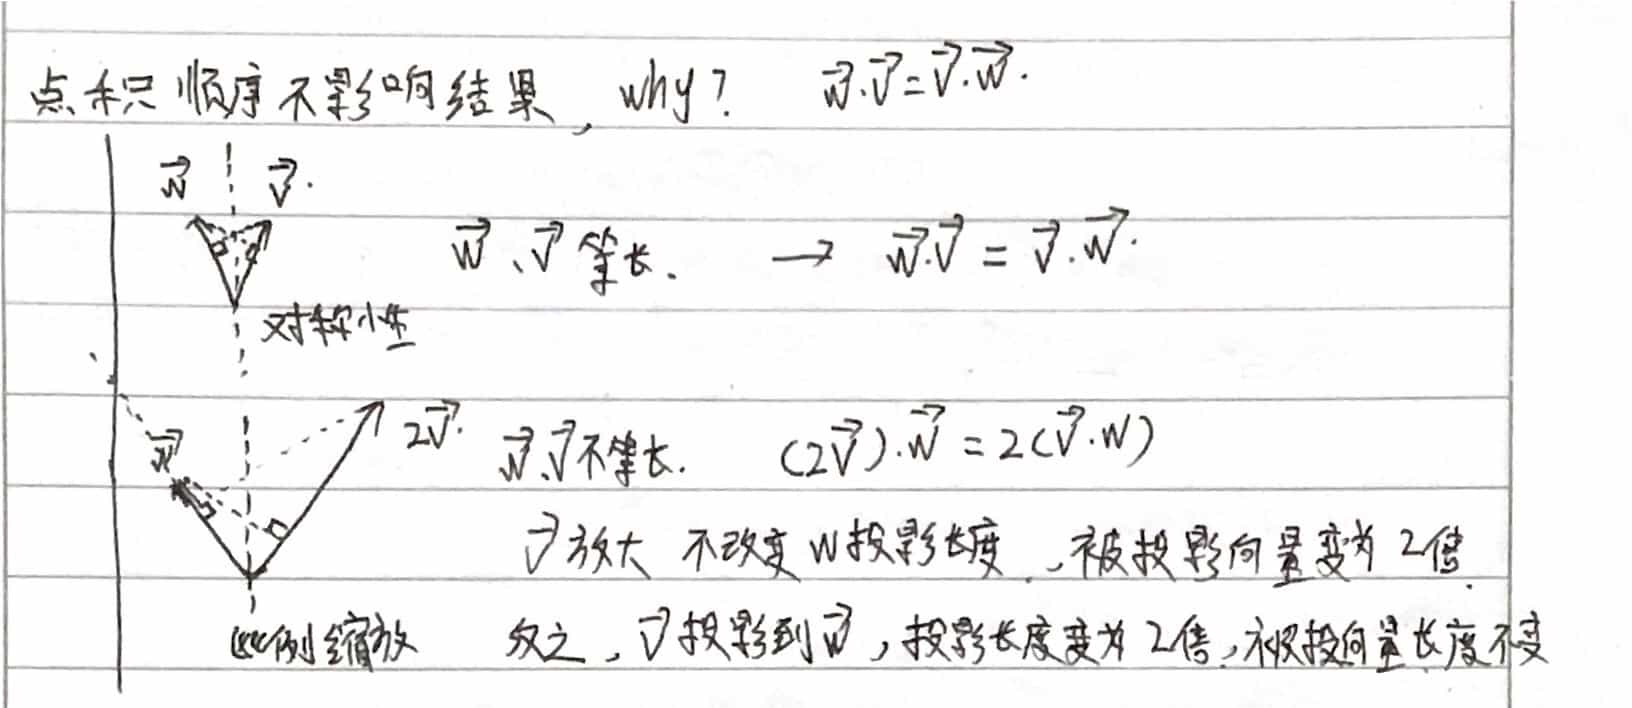 点积顺序不影响结果, why? $\vec{w}\cdot\vec{v}=\vec{v}\cdot\vec{w}$.
$\vec{w}$ $\vec{v}$.
$\vec{w}$、$\vec{v}$ 等长. → $\vec{w}\cdot\vec{v}=\vec{v}\cdot\vec{w}$.
对称性
$\vec{w}$ $2\vec{v}$. $\vec{w}$.$\vec{v}$不等长. $(2\vec{v})\cdot\vec{w}=2(\vec{v}\cdot w)$
$\vec{v}$放大 不改变 w投影长度, 被投影向量变为2倍.
比例缩放 反之, $\vec{v}$投影到$\vec{w}$, 投影长度变为2倍, 被投向量长度不变